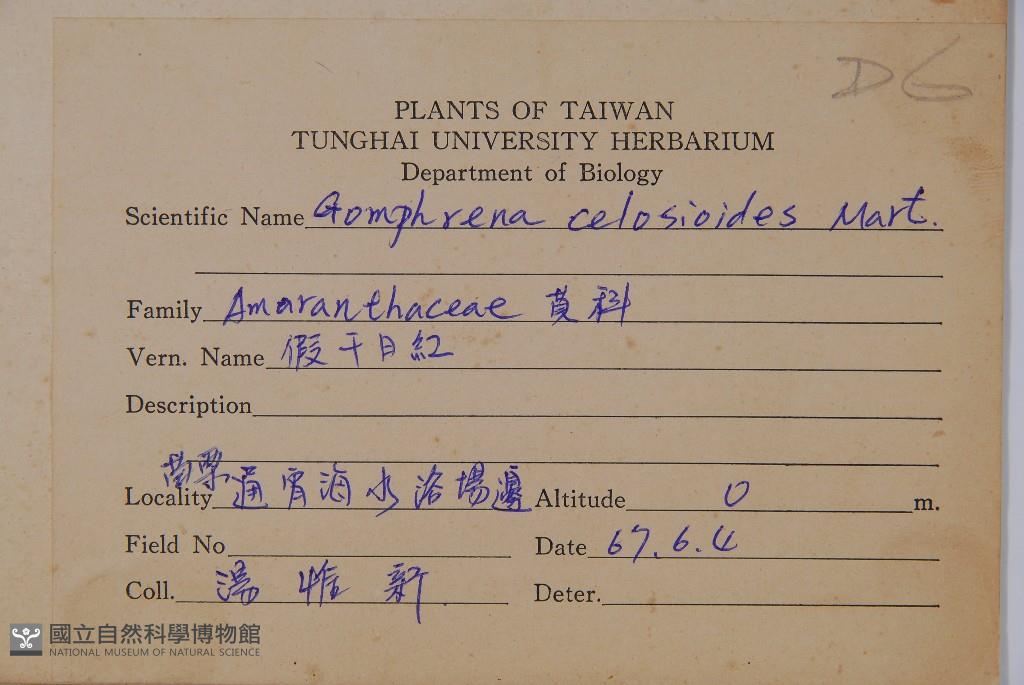 DG
PLANTS OF TAIWAN
TUNGHAI UNIVERSITY HERBARIUM
Department of Biology
Scientific Name Gomphrena celosioides Mart.
Family Amaranthaceae 莧科
Vern. Name 假千日紅
Description
苗栗
Locality 通宵海水浴場邊 Altitude 0 m.
Field No Date 67.6.4
Coll. 湯惟新 Deter.
國立自然科學博物館
NATIONAL MUSEUM OF NATURAL SCIENCE